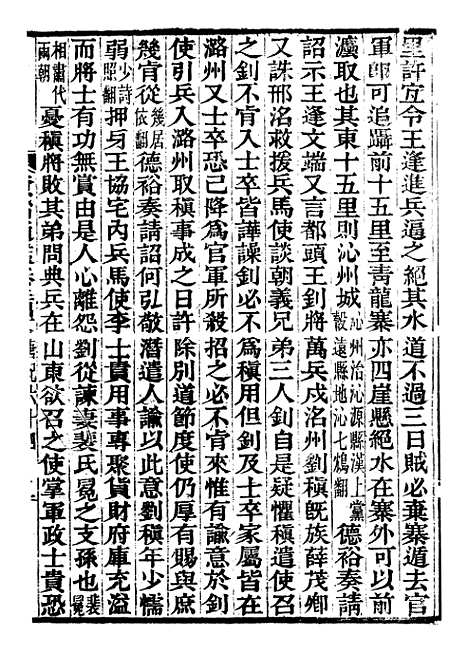 里許宜令王逢進兵逼之絕其水道不過三日賊必棄寨遁去官
軍卽可追躡前十五里至青龍寨亦四崖懸絕水在寨外可以前
灋取也其東十五里則沁州城沁州治沁源縣漢上黨穀遠縣地沁七鴆翻德裕奏請
詔示王逢文端又言都頭王釗將萬兵戍洺州劉稹旣族薛茂卿
又誅邢洺救援兵馬使談朝義兄弟三人釗自是疑懼稹遣使召
之釗不肯入士卒皆譁譟釗必不爲稹用但釗及士卒家屬皆在
潞州又士卒恐已降爲官軍所殺招之必不肯來惟有諭意於釗
使引兵入潞州取稹事成之日許除別道節度使仍厚有賜與庶
幾肯從幾居依翻德裕奏請詔何弘敬潛遣人諭以此意劉稹年少懦
弱少詩照翻押身王協宅內兵馬使李士貴用事專聚貨財府庫充溢
而將士有功無賞由是人心離怨劉從諫妻裴氏冕之支孫也裴冕
相肅代兩朝憂稹將敗其弟問典兵在山東欲召之使掌軍政士貴恐